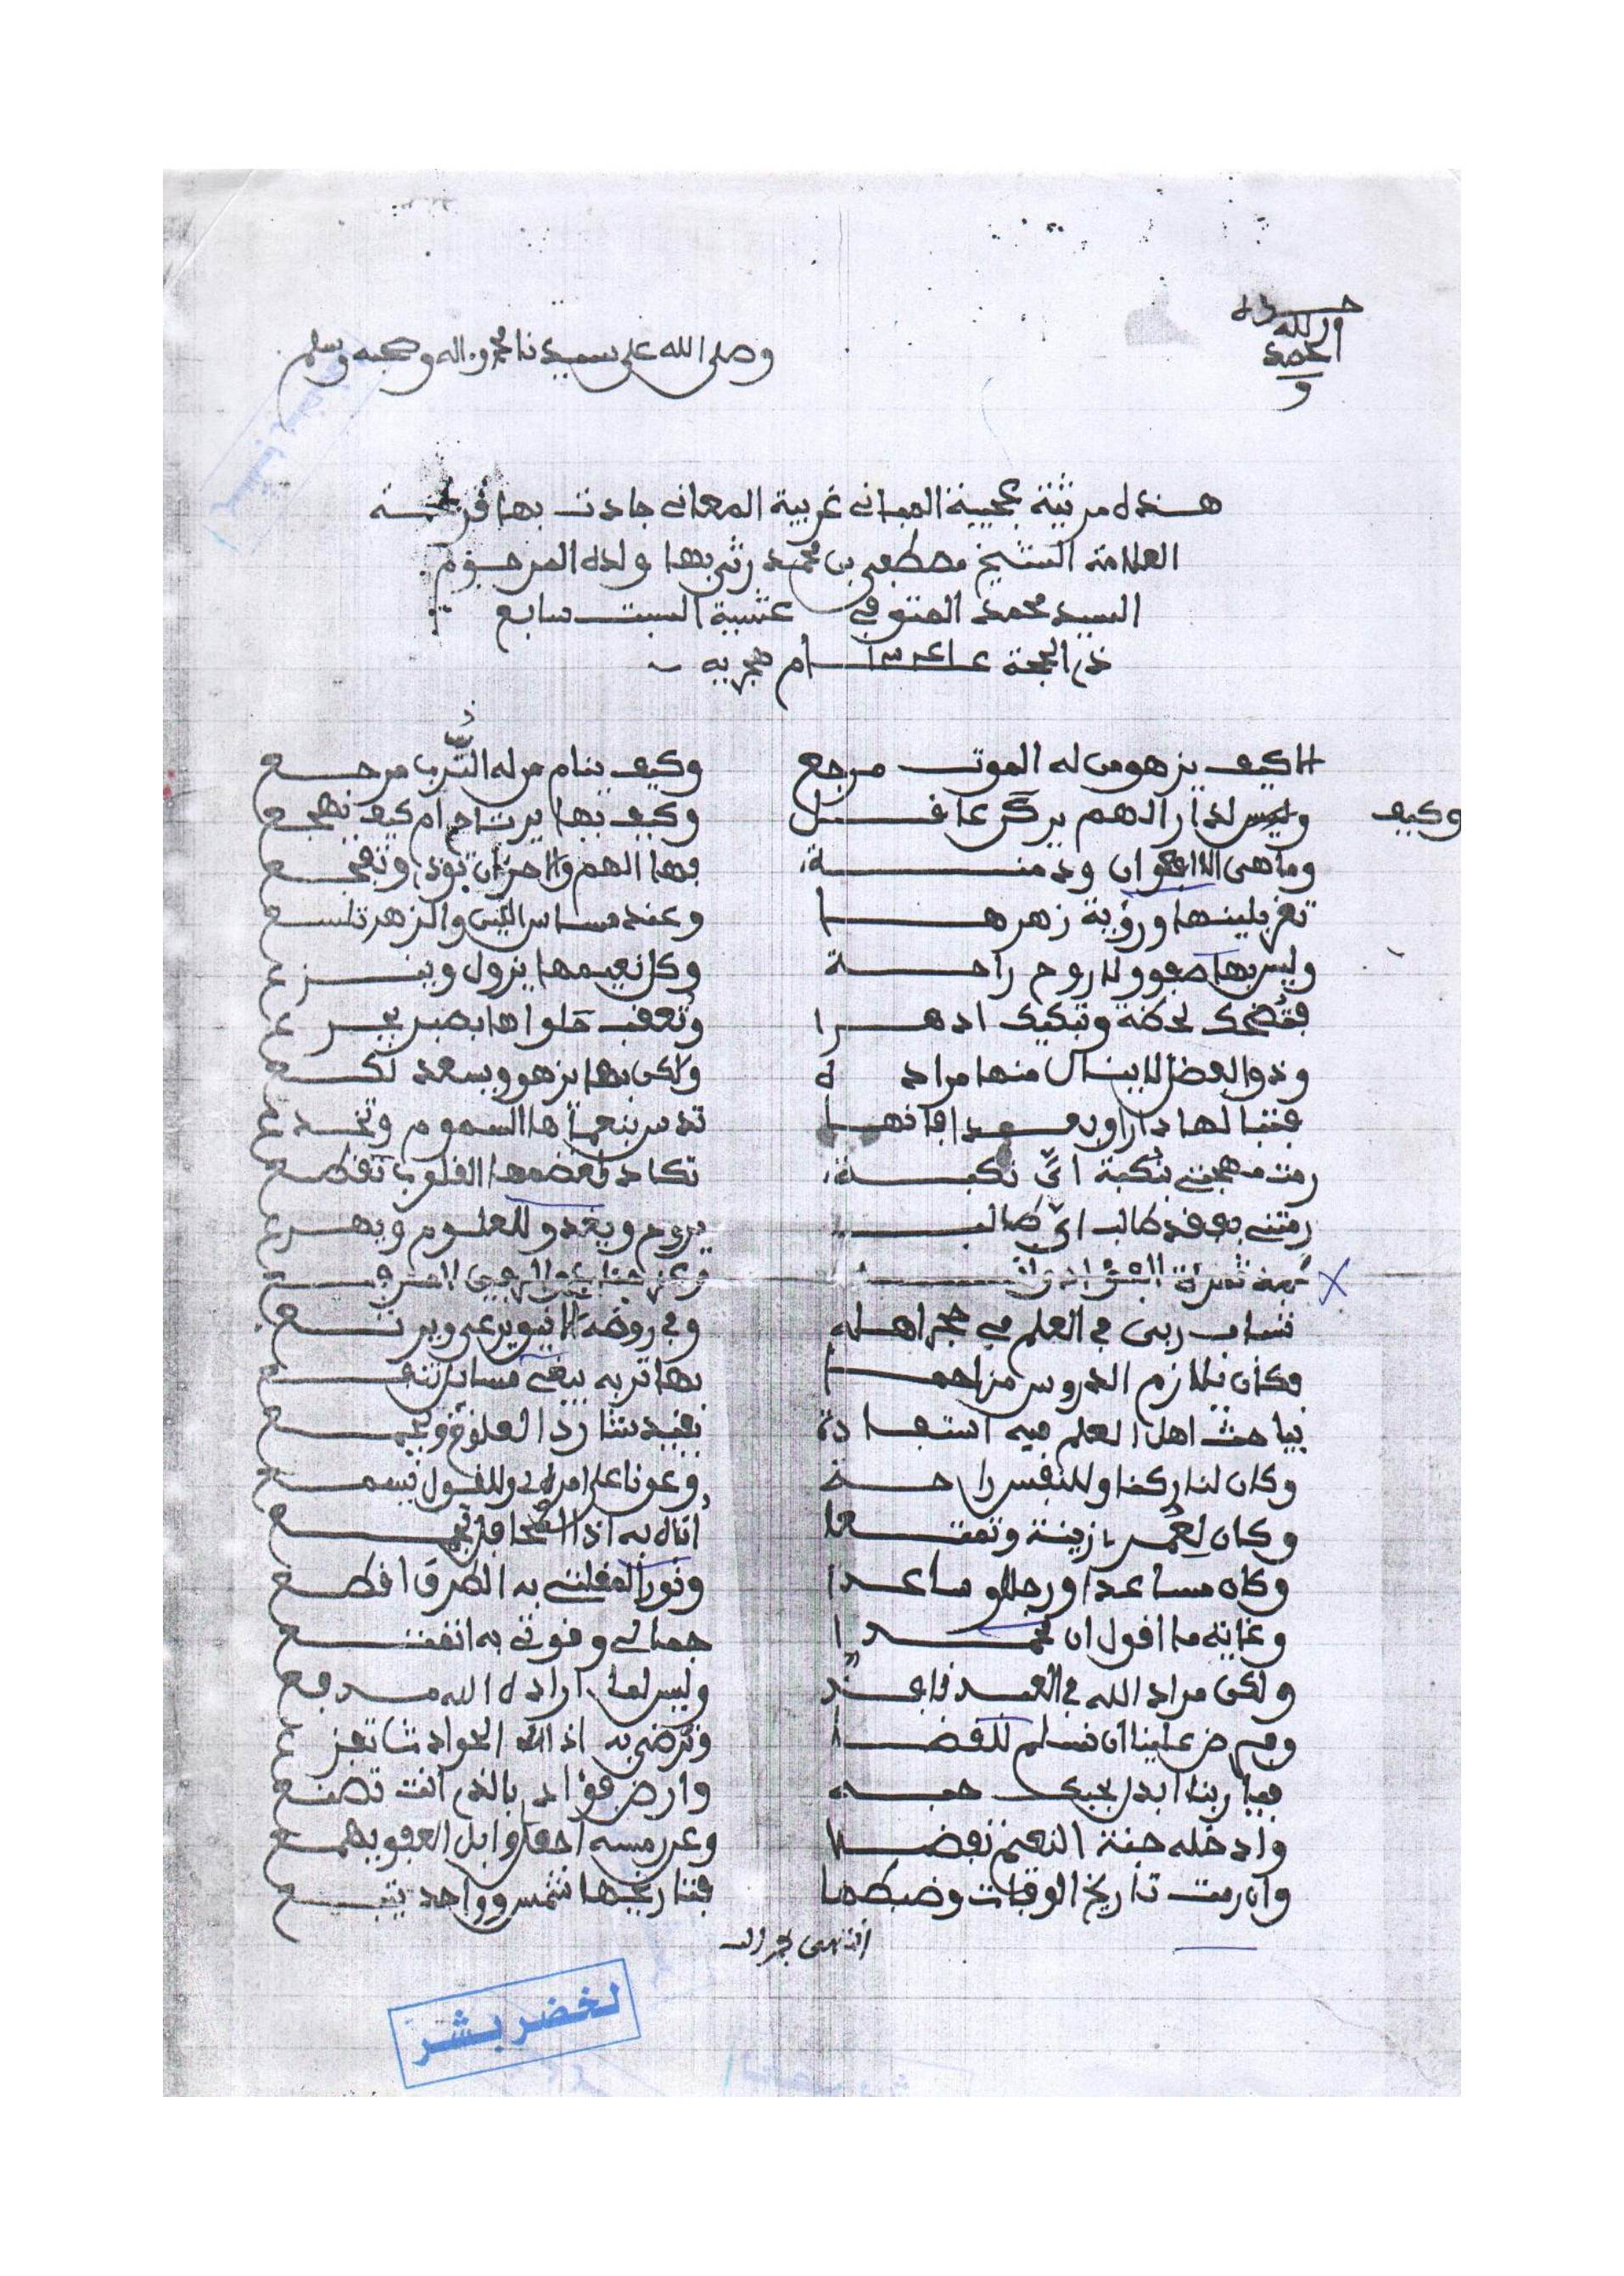 الحمد لله وحده
و
وصلى الله على سيدنا محمد وءاله وصحبه وسلم
هذه مرثية عجيبة المبانى غريبة المعانى جادت بها قريحة
العلامة الشيخ مصطفى بن محمد رثى بها ولده المرحوم
السيد محمد المتوفى عشية السبت سابع
ذى الحجة عام هجريه
الا كيف يزهو من له الموت مرجع وكيف ينام من له الترب مرجع
وكيف لدار الهم يركن عاقل وكيف بها يرتاح ام كيف يهجع
وما هى الا افعوان ودمنة بها الهم والاحزان توذى وتفجع
تغر بلينها ورؤية زهرها وعند مساس اللين والزهر تلسع
وليس بها صفو ولا روح راحة وكل نعيمها يزول وينزع
فتضحك لحظة وتبكيك ادهرا وتعقب حلواها بصبر يجرع
وذو الفضل لا ينال منها مراده ولكن بها يزهو ويسعد لكع
فتبا لها دارا وبعدا فانها تدس بنعماها السموم وتخدع
رمت مهجتى بنكبة اى نكبة تكاد لعضمها القلوب تقطع
رمتنى بفقد طالب اى طالب يروح ويغدو للعلوم ويهرع
شاب ربى فى العلم فى حجر اهله وفى روضه الانيق يرعى ويرتع
فكان يلازم الدروس مزاحما بها تربه يبغى مسائل تنفع
يباحث اهل العلم فيه استفادة يفيد شارد العلوم ويجمع
وكان لنا ركنا وللنفس راحة وعونا على امرى وللقول يسمع
وكان لعمرى زينة وتمتعا
وكان مساعدا ورجلا وساعدا ونورا لمقلتى به الطرق اقطع
وغاية ما اقول ان محمدا جمالى وقوتى به اتمتع
ولكن مراد الله فى العبد نافذ وليس لما اراده الله مدفع
وفرض علينا ان نسلم للقضا ونرضى به اذ الحوادث تفزع
فيا ربنا ابدل بحبك حبه وارض فؤادى بالذى انت تصنع
وادخله جنة النعيم تفضلا وعن رمسه اجعل وابل العفو يهمع
وان رمت تاريخ الوفات وضبطها فتاريخها شمس وواحد يتبع
لخضر بشر